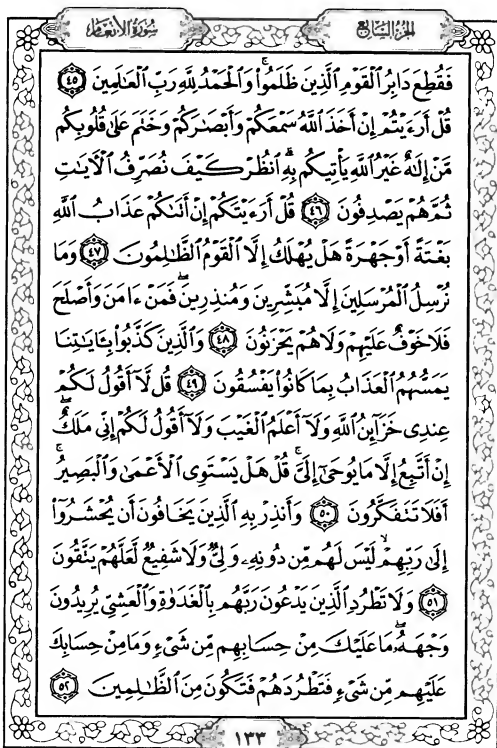 الجزء السابع
سورة الأنعام
فَقُطِعَ دَابِرُ ٱلْقَوْمِ ٱلَّذِينَ ظَلَمُوا۟ ۚ وَٱلْحَمْدُ لِلَّهِ رَبِّ ٱلْعَـٰلَمِينَ ٤٥
قُلْ أَرَءَيْتُمْ إِنْ أَخَذَ ٱللَّهُ سَمْعَكُمْ وَأَبْصَـٰرَكُمْ وَخَتَمَ عَلَىٰ قُلُوبِكُم
مَّنْ إِلَـٰهٌ غَيْرُ ٱللَّهِ يَأْتِيكُم بِهِ ۗ ٱنظُرْ كَيْفَ نُصَرِّفُ ٱلْـَٔايَـٰتِ
ثُمَّ هُمْ يَصْدِفُونَ ٤٦ قُلْ أَرَءَيْتَكُمْ إِنْ أَتَىٰكُمْ عَذَابُ ٱللَّهِ
بَغْتَةً أَوْ جَهْرَةً هَلْ يُهْلَكُ إِلَّا ٱلْقَوْمُ ٱلظَّـٰلِمُونَ ٤٧ وَمَا
نُرْسِلُ ٱلْمُرْسَلِينَ إِلَّا مُبَشِّرِينَ وَمُنذِرِينَ ۖ فَمَنْ ءَامَنَ وَأَصْلَحَ
فَلَا خَوْفٌ عَلَيْهِمْ وَلَا هُمْ يَحْزَنُونَ ٤٨ وَٱلَّذِينَ كَذَّبُوا۟ بِـَٔايَـٰتِنَا
يَمَسُّهُمُ ٱلْعَذَابُ بِمَا كَانُوا۟ يَفْسُقُونَ ٤٩ قُل لَّآ أَقُولُ لَكُمْ
عِندِى خَزَآئِنُ ٱللَّهِ وَلَآ أَعْلَمُ ٱلْغَيْبَ وَلَآ أَقُولُ لَكُمْ إِنِّى مَلَكٌ ۖ
إِنْ أَتَّبِعُ إِلَّا مَا يُوحَىٰٓ إِلَىَّ ۚ قُلْ هَلْ يَسْتَوِى ٱلْأَعْمَىٰ وَٱلْبَصِيرُ ۚ
أَفَلَا تَتَفَكَّرُونَ ٥٠ وَأَنذِرْ بِهِ ٱلَّذِينَ يَخَافُونَ أَن يُحْشَرُوٓا۟
إِلَىٰ رَبِّهِمْ ۙ لَيْسَ لَهُم مِّن دُونِهِۦ وَلِىٌّ وَلَا شَفِيعٌ لَّعَلَّهُمْ يَتَّقُونَ
٥١ وَلَا تَطْرُدِ ٱلَّذِينَ يَدْعُونَ رَبَّهُم بِٱلْغَدَوٰةِ وَٱلْعَشِىِّ يُرِيدُونَ
وَجْهَهُۥ ۖ مَا عَلَيْكَ مِنْ حِسَابِهِم مِّن شَىْءٍ وَمَا مِنْ حِسَابِكَ
عَلَيْهِم مِّن شَىْءٍ فَتَطْرُدَهُمْ فَتَكُونَ مِنَ ٱلظَّـٰلِمِينَ ٥٢
١٣٣